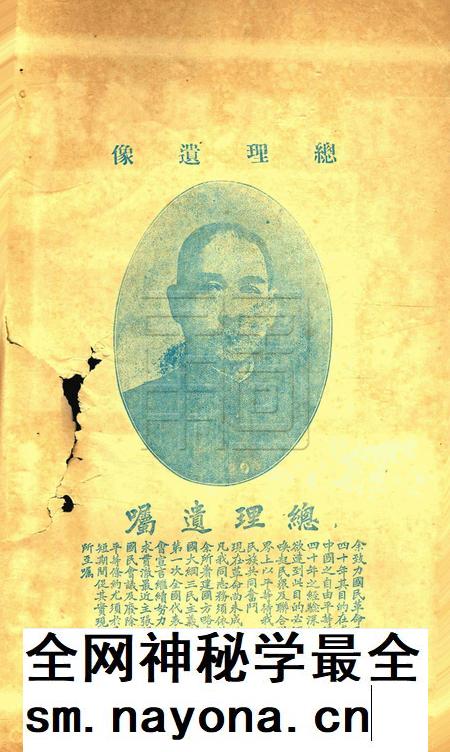 總理遺像
總理遺囑
余致力國民革命
四十年其目的在
中國之自由平等
四十年之經驗深
欲達到此目的必
喚起民眾及聯合
界上以平等待我
民族共同奮鬥
現在革命尚未成
凡我同志務須依
余所著建國方略
國大綱三民主義
第一次全國代表
會宣言繼續努力
求貫徹最近主張
國民會議及廢除
平等條約尤須於
短期間促其實現
所至囑
全网神秘学最全
sm.nayona.cn